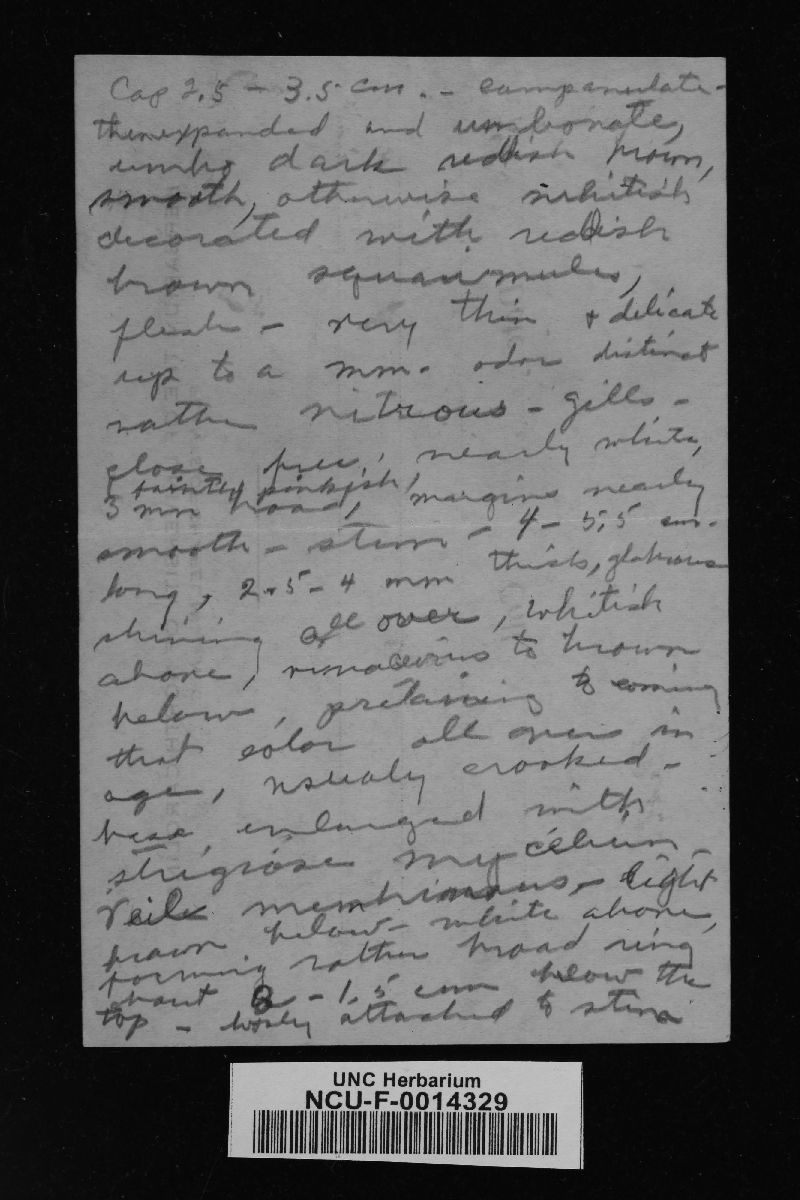 Cap 2.5 - 3.5 cm. - campanulate -
then expanded and umbonate,
umbo dark reddish brown,
smooth, otherwise whitish
decorated with reddish
brown squamules,
flesh - very thin & delicate
up to a mm. odor distinct
rather nitrous - gills -
close, free, nearly white,
faintly pinkish,
3 mm broad, margins nearly
smooth - stem - 4 - 5.5 cm.
long, 2.5 - 4 mm thick, glabrous
shining all over, whitish
above, vinaceous to brown
below, to coming
that color all over in
age, usualy crooked -
base enlarged with
strigose mycelium -
Veil membranous - light
brown below - white above,
forming rather broad ring
about 8 - 1.5 cm below the
top - attached to stem
UNC Herbarium
NCU-F-0014329